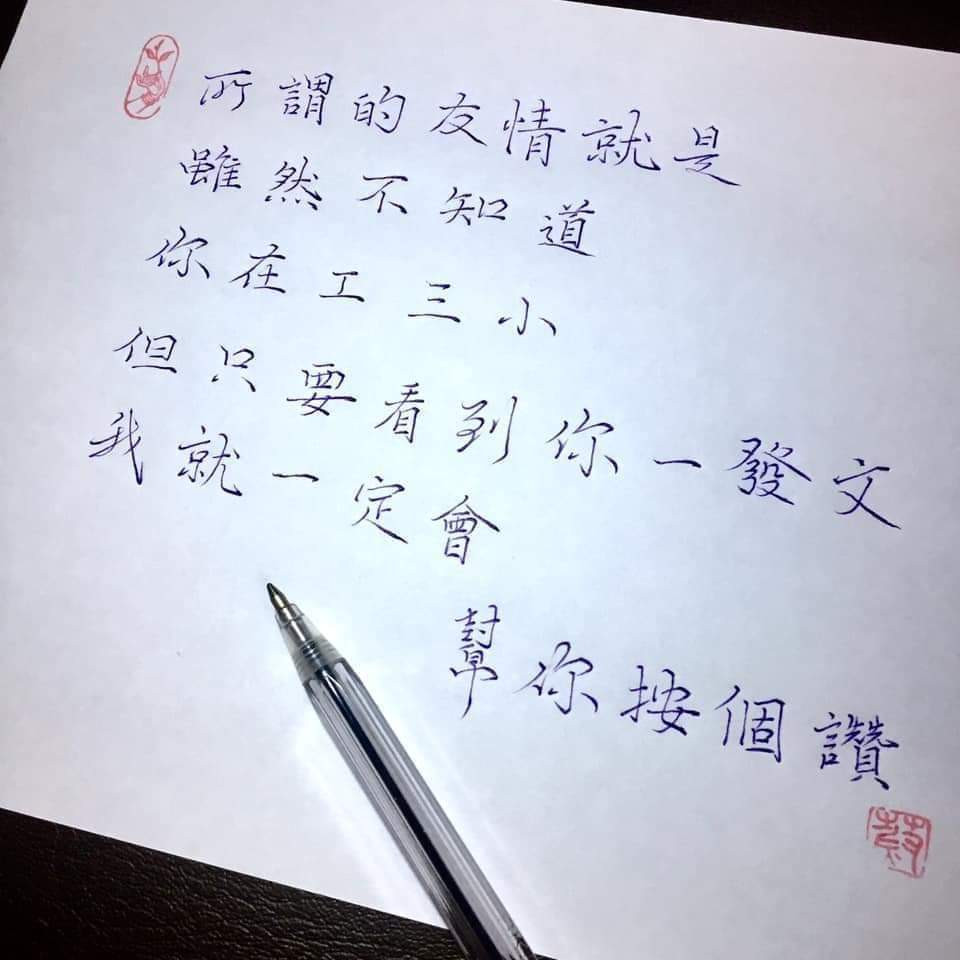 所謂的友情就是
雖然不知道
你在工三小
但只要看到你一發文
我就一定會
幫你按個讚